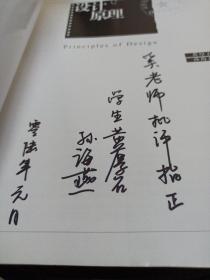 设计
原理
Principles of Design
吴老师批评指正
学生黄厚石
孙海燕
零陆年元月